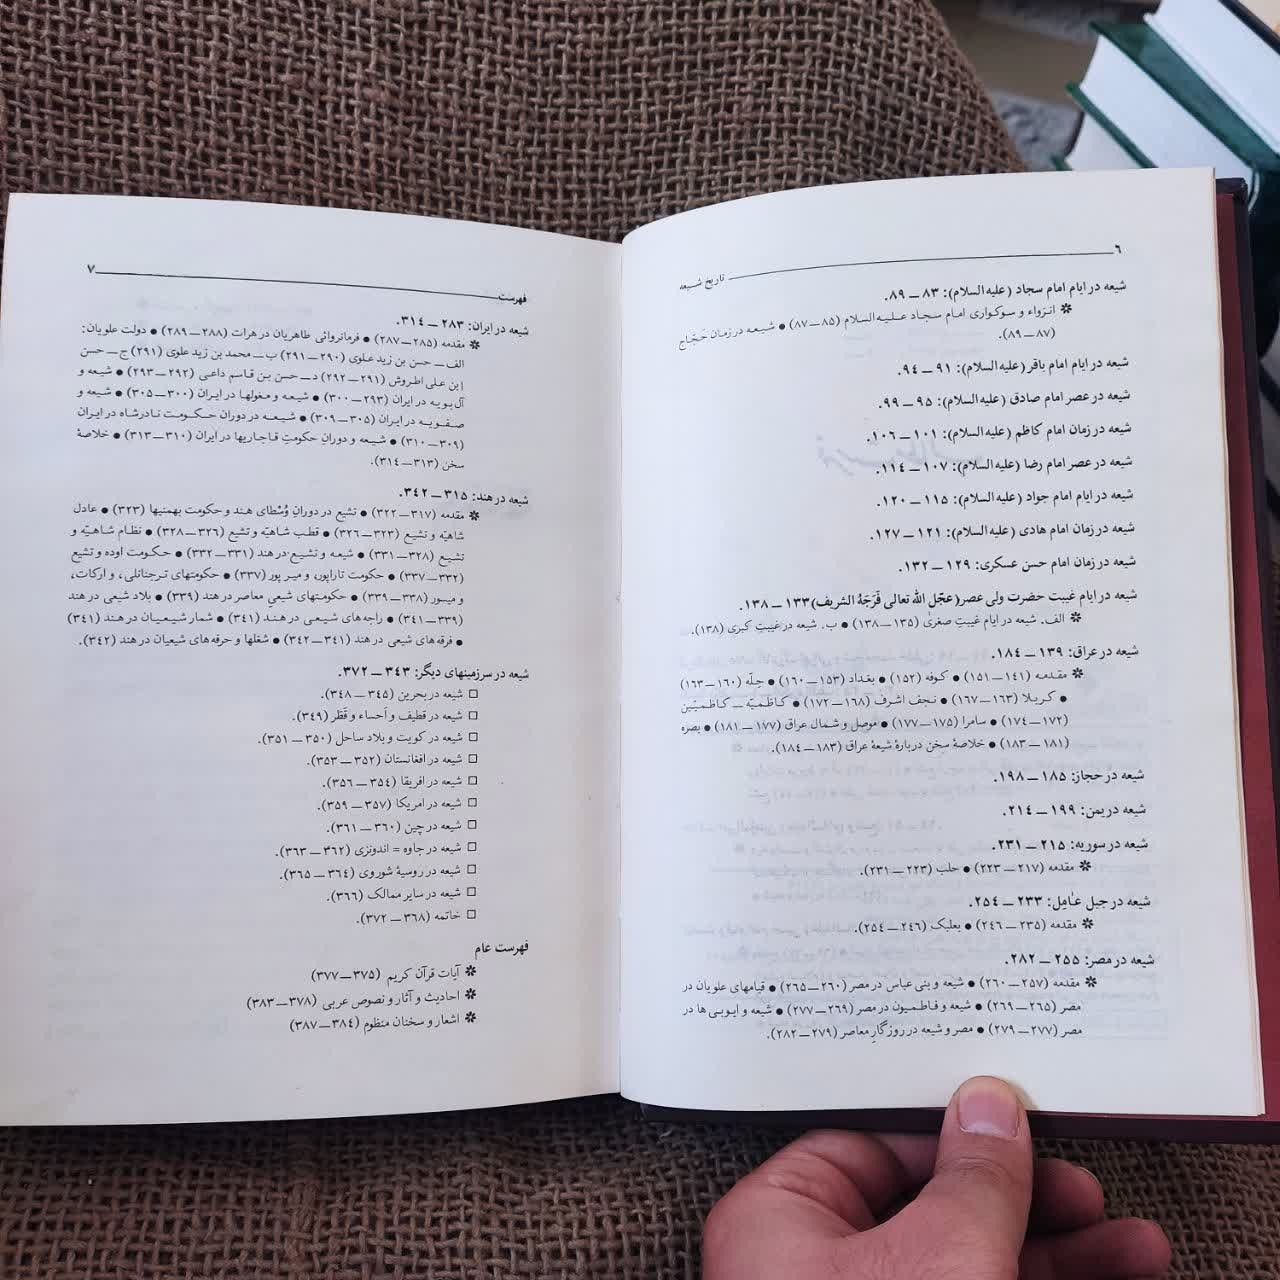 ٦
تاریخ شیعه
شیعه در ایام امام سجاد (علیه السلام): ۸۳ ــ ۸۹.
✽ انزواء و سوگواری امام سجاد علیه السلام (۸۵ــ۸۷) ● شیعه در زمان حَجّاج
(۸۷ــ۸۹).
شیعه در ایام امام باقر (علیه السلام): ۹۱ ــ ۹٤.
شیعه در عصر امام صادق (علیه السلام): ۹۵ ــ ۹۹.
شیعه در زمان امام کاظم (علیه السلام): ۱۰۱ ــ ۱۰٦.
شیعه در عصر امام رضا (علیه السلام): ۱۰۷ ــ ۱۱٤.
شیعه در ایام امام جواد (علیه السلام): ۱۱۵ ــ ۱۲۰.
شیعه در زمان امام هادی (علیه السلام): ۱۲۱ ــ ۱۲۷.
شیعه در زمان امام حسن عسکری: ۱۲۹ ــ ۱۳۲.
شیعه در ایام غیبت حضرت ولی عصر(عجّل الله تعالی فَرَجَهُ الشریف)۱۳۳ ــ ۱۳۸.
✽ الف. شیعه در ایام غیبتِ صغریٰ (۱۳۵ــ۱۳۸) ● ب. شیعه در غیبتِ کبری (۱۳۸).
شیعه در عراق: ۱۳۹ ــ ۱۸٤.
✽ مقدمه (۱٤۱ــ۱۵۱) ● کوفه (۱۵۲) ● بغداد (۱۵۳ــ۱٦۰) ● حِلّه (۱٦۰ــ۱٦۳)
● کربلا (۱٦۳ــ۱٦۷) ● نجف اشرف (۱٦۸ــ۱۷۲) ● کاظمیّه ــ کاظمیّین
(۱۷۲ــ۱۷٤) ● سامرا (۱۷۵ــ۱۷۷) ● موصل و شمال عراق (۱۷۷ ــ ۱۸۱) ● بصره
(۱۸۱ ــ ۱۸۳) ● خلاصهٔ سخن دربارهٔ شیعهٔ عراق (۱۸۳ــ۱۸٤).
شیعه در حجاز: ۱۸۵ ــ ۱۹۸.
شیعه در یمن: ۱۹۹ ــ ۲۱٤.
شیعه در سوریه: ۲۱۵ ــ ۲۳۱.
✽ مقدمه (۲۱۷ــ۲۲۳) ● حلب (۲۲۳ــ۲۳۱).
شیعه در جبل عٰامِل: ۲۳۳ ــ ۲۵٤.
✽ مقدمه (۲۳۵ــ۲٤٦) ● بعلبک (۲٤٦ــ۲۵٤).
شیعه در مصر: ۲۵۵ ــ ۲۸۲.
✽ مقدمه (۲۵۷ــ۲٦۰) ● شیعه و بنی عباس در مصر (۲٦۰ــ۲٦۵) ● قیامهای علویان در
مصر (۲٦۵ــ۲٦۹) ● شیعه و فاطمیون در مصر (۲٦۹ــ۲۷۷) ● شیعه و ایوبی ها در
مصر (۲۷۷ــ۲۷۹) ● مصر و شیعه در روزگارِ معاصر (۲۷۹ــ۲۸۲).
فهرست
۷
شیعه در ایران: ۲۸۳ ــ ۳۱٤.
✽ مقدمه (۲۸۵ــ۲۸۷) ● فرمانروائی طاهریان در هرات (۲۸۸ــ۲۸۹) ● دولت علویان:
الف ــ حسن بن زید علوی (۲۹۰ــ۲۹۱) ب ــ محمد بن زید علوی (۲۹۱) ج ــ حسن
إبن علی اطروش (۲۹۱ــ۲۹۲) د ــ حسن بن قاسم داعی (۲۹۲ــ۲۹۳) ● شیعه و
آل بویه در ایران (۲۹۳ــ۳۰۰) ● شیعه و مغولها در ایران (۳۰۰ــ۳۰۵) ● شیعه و
صفویه در ایران (۳۰۵ــ۳۰۹) ● شیعه در دوران حکومت نادرشاه در ایران
(۳۰۹ــ۳۱۰) ● شیعه و دورانِ حکومتِ قاجاریها در ایران (۳۱۰ــ۳۱۳) ● خلاصهٔ
سخن (۳۱۳ــ۳۱٤).
شیعه در هند: ۳۱۵ ــ ۳٤۲.
✽ مقدمه (۳۱۷ــ۳۲۲) ● تشیع در دورانِ وُسْطای هند و حکومت بهمنیها (۳۲۳) ● عادل
شاهیّه و تشیع (۳۲۳ــ۳۲٦) ● قطب شاهیّه و تشیع (۳۲٦ــ۳۲۸) ● نظام شاهیّه و
تشیع (۳۲۸ــ۳۳۱) ● شیعه و تشیع در هند (۳۳۱ــ۳۳۲) ● حکومت اوده و تشیع
(۳۳۲ــ۳۳۷) ● حکومت تاراپور، و میر پور (۳۳۷) ● حکومتهای ترچناتلی، و ارکات،
و میسور (۳۳۸ــ۳۳۹) ● حکومتهای شیعیِ معاصر در هند (۳۳۹) ● بلاد شیعی در هند
(۳۳۹ــ۳٤۱) ● راجه‌های شیعی در هند (۳٤۱) ● شمار شیعیان در هند (۳٤۱)
● فرقه‌های شیعی در هند (۳٤۱ــ۳٤۲) ● شغلها و حرفه‌های شیعیان در هند (۳٤۲).
شیعه در سرزمینهای دیگر: ۳٤۳ ــ ۳۷۲.
□ شیعه در بحرین (۳٤۵ ــ ۳٤۸).
□ شیعه در قطیف و اَحساء و قَطَر (۳٤۹).
□ شیعه در کویت و بلاد ساحل (۳۵۰ ــ ۳۵۱).
□ شیعه در افغانستان (۳۵۲ ــ ۳۵۳).
□ شیعه در افریقا (۳۵٤ ــ ۳۵٦).
□ شیعه در امریکا (۳۵۷ ــ ۳۵۹).
□ شیعه در چین (۳٦۰ ــ ۳٦۱).
□ شیعه در جاوه = اندونزی (۳٦۲ ــ ۳٦۳).
□ شیعه در روسیهٔ شوروی (۳٦٤ ــ ۳٦۵).
□ شیعه در سایر ممالک (۳٦٦).
□ خاتمه (۳٦۸ ــ ۳۷۲).
فهرست عام
✽ آیات قرآن کریم (۳۷۵ــ۳۷۷)
✽ احادیث و آثار و نصوص عربی (۳۷۸ــ۳۸۳)
✽ اشعار و سخنان منظوم (۳۸٤ــ۳۸۷)